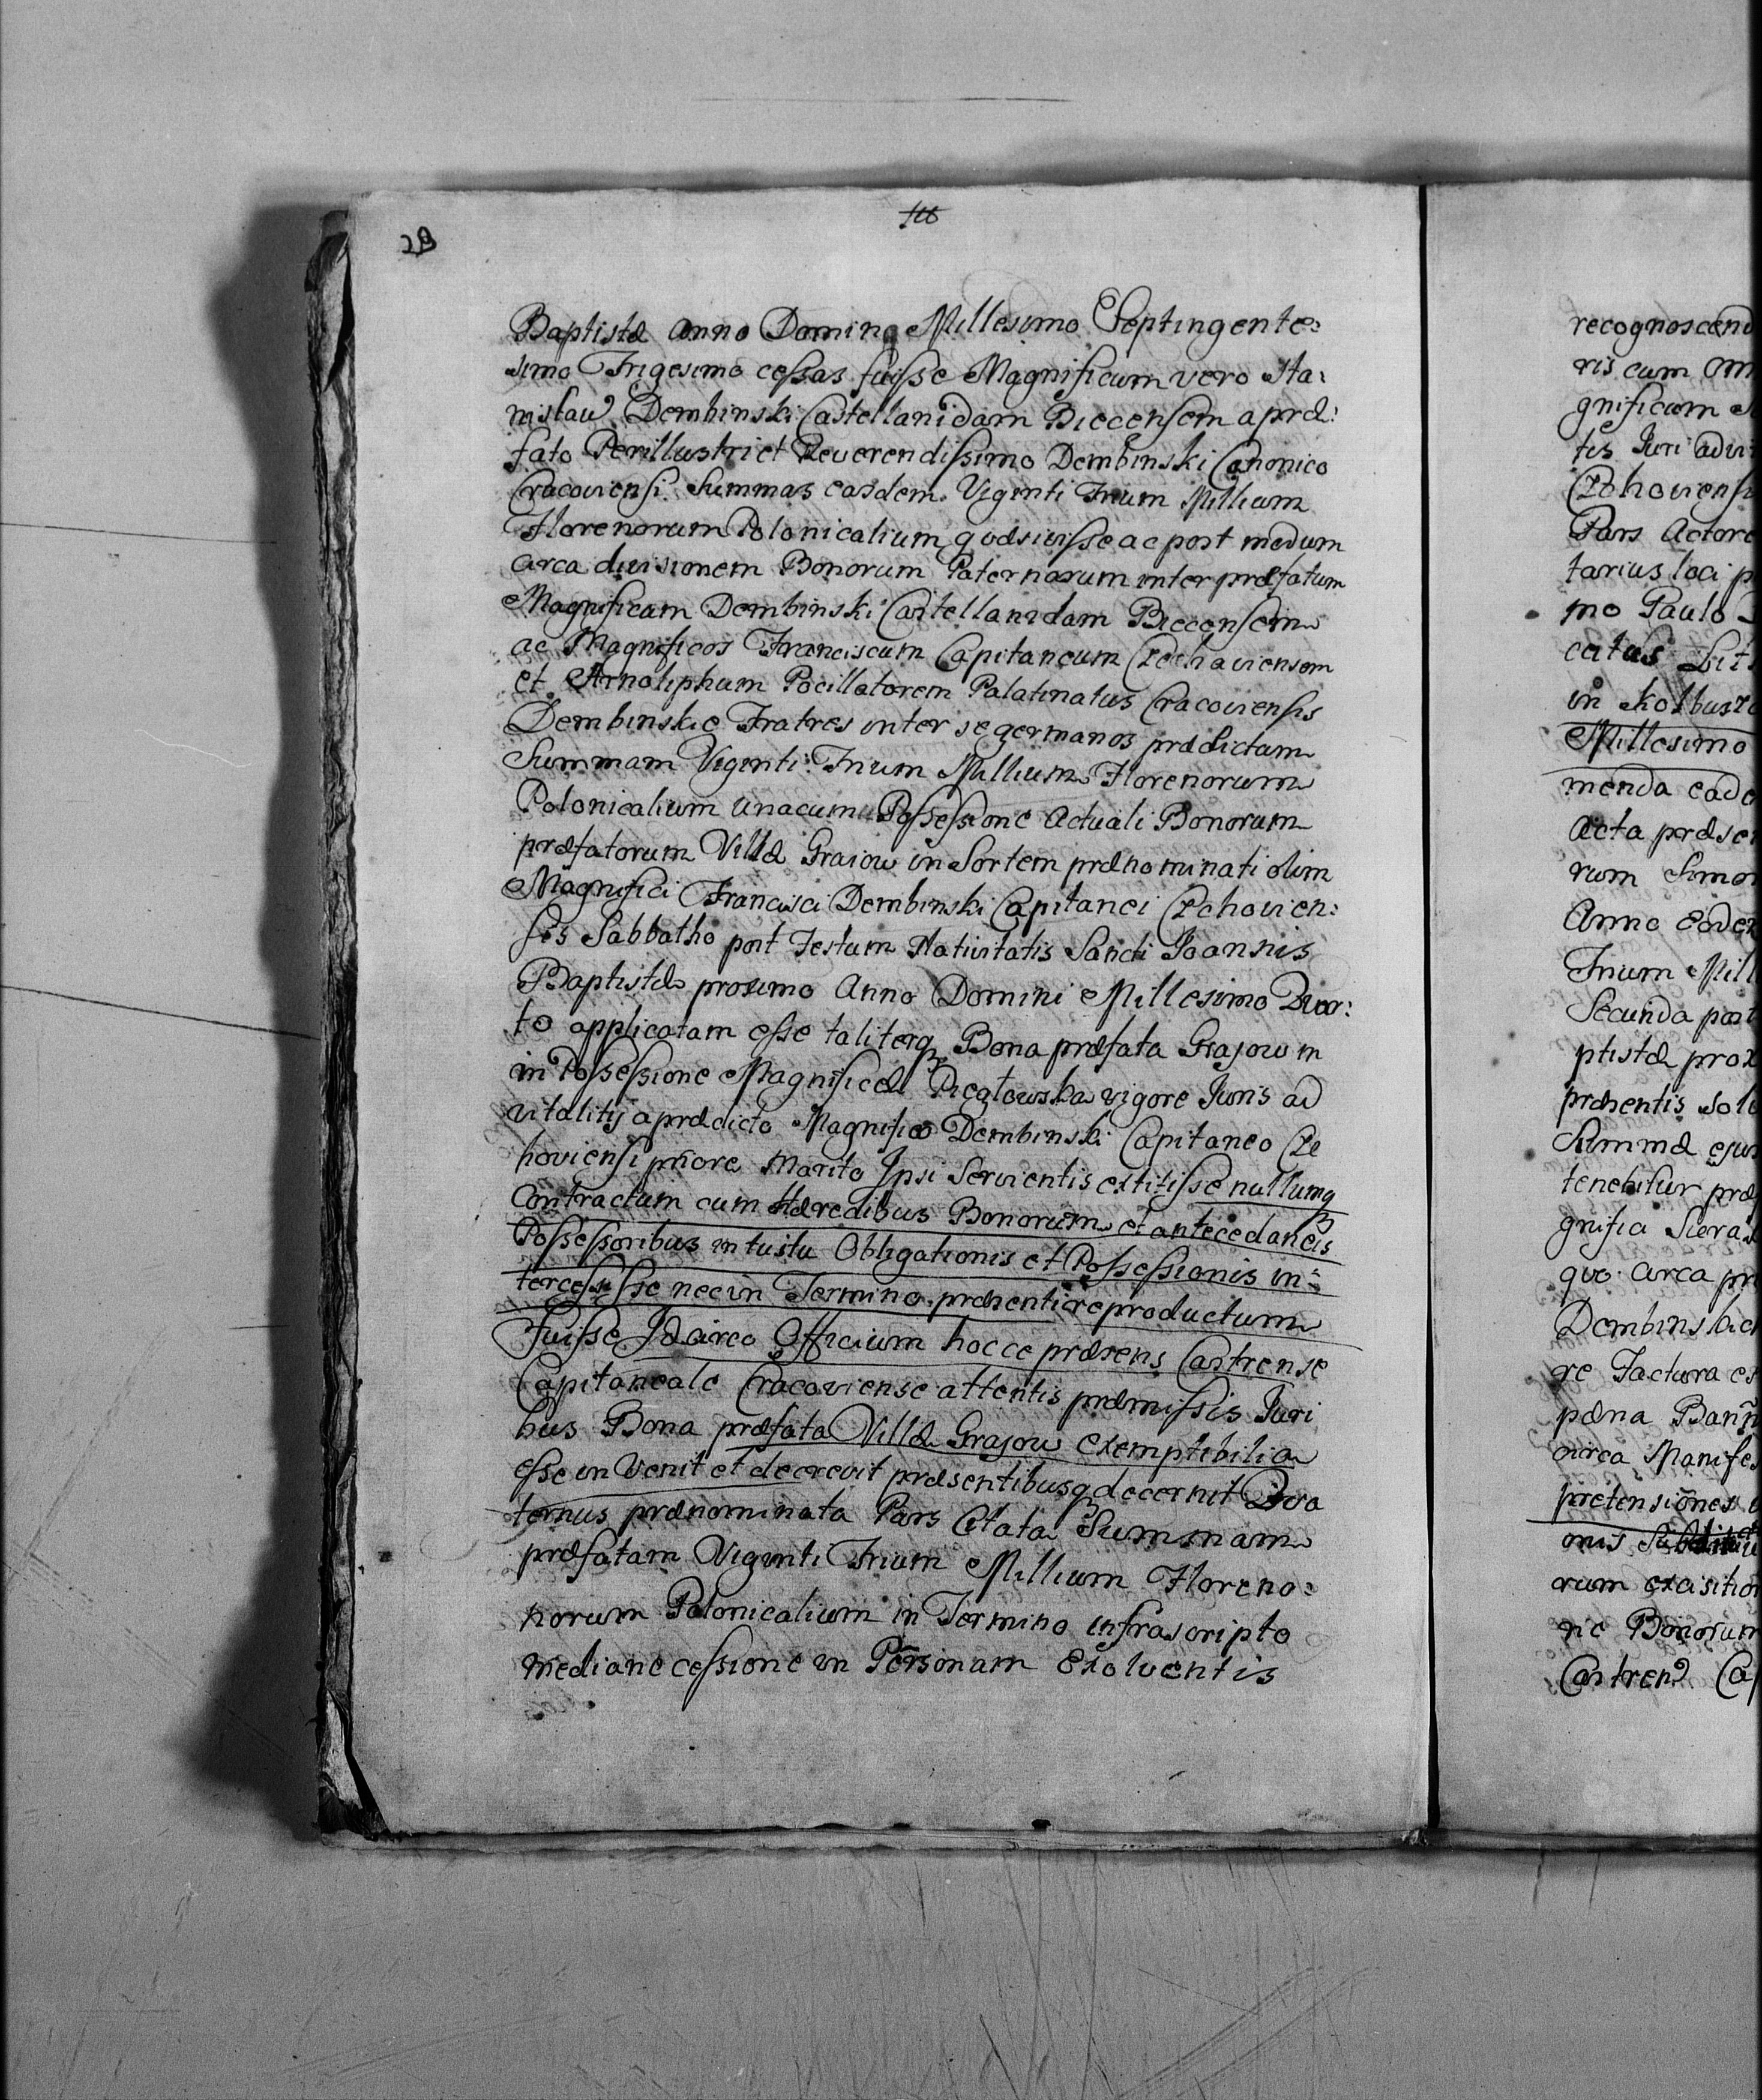 28
Baptistæ Anno Domino Millesimo Septingente:
simo Trigesimo cessas fuisse Magnificum vero Sta:
nislaw Dembinski Castellanidam Biecensem a præ:
fato Perillustri et Reverendissimo Dembinski Canonico
Cracoviensi Summas easdem Viginti Trium Millium
Florenorum Polonicalium quæsivisse ac post medum
circa divisionem Bonorum Paternorum inter præfatum
Magnificam Dembinski Castellanidam Biecensem
ac Magnificos Franciscum Capitaneum Czchoviensem
et Arnolphum Pocillatorem Palatinatus Cracoviensis
Dembinskie Fratres inter se germanos prædictam
Summam Viginti Trium Millium Florenorum
Polonicalium unacum Possessione Actuali Bonorum
præfatorum Villæ Graiow in Sortem prænominati olim
Magnifici Francisci Dembinski Capitanei Czchovien:
sis Sabbatho post Festum Nativitatis Sancti Joannis
Baptistæ proximo Anno Domini Millesimo Quar:
to applicatam esse taliterq Bona præfata Grajow in
in Possessione Magnificæ Piegłowska vigore Juris ad
vitalitij a prædicto Magnifico Dembinski Capitaneo Cze
hoviensi priore Marito Ipsi Servientis extitisse nullumq
Contractum cum Hæredibus Bonorum et antecedaneis
Possessoribus intuitu Obligationis et Possessionis in:
tercessisse nec in Termino præsenti reproductum
Fuisse Idcirco Officium hocce præsens Castrense
Capitaneale Cracoviense attentis præmissis Juri
bus Bona præfata Villæ Grajow exemptibilia
esse in Venit et decrevit præsentibusq decernit Qua
tenus prænominata Pars Citata Summam
præfatam Viginti Trium Millium Floreno:
norum Polonicalium in Termino infrascripto
mediane cessione in Personam Exolventis
recognoscend
ris cum Om
gnificum
tis Juri advi
Czchoviensi
Pars Actore
tarius loci p
mo Paulo
citus Lit
in Kolbusz
Millesimo
menda eade
Acta præse
rum Simo
Anno Eode
Trium Mill
Secunda post
ptistæ prox
præsentis Sol
Summæ ejus
tenebitur præ
gnifica Siera
quo circa pr
Dembinskic
re Factura es
pæna Bann
nirca Manifes
pretensiones
onis
rum excisition
ne Bonorum
Castren Cap